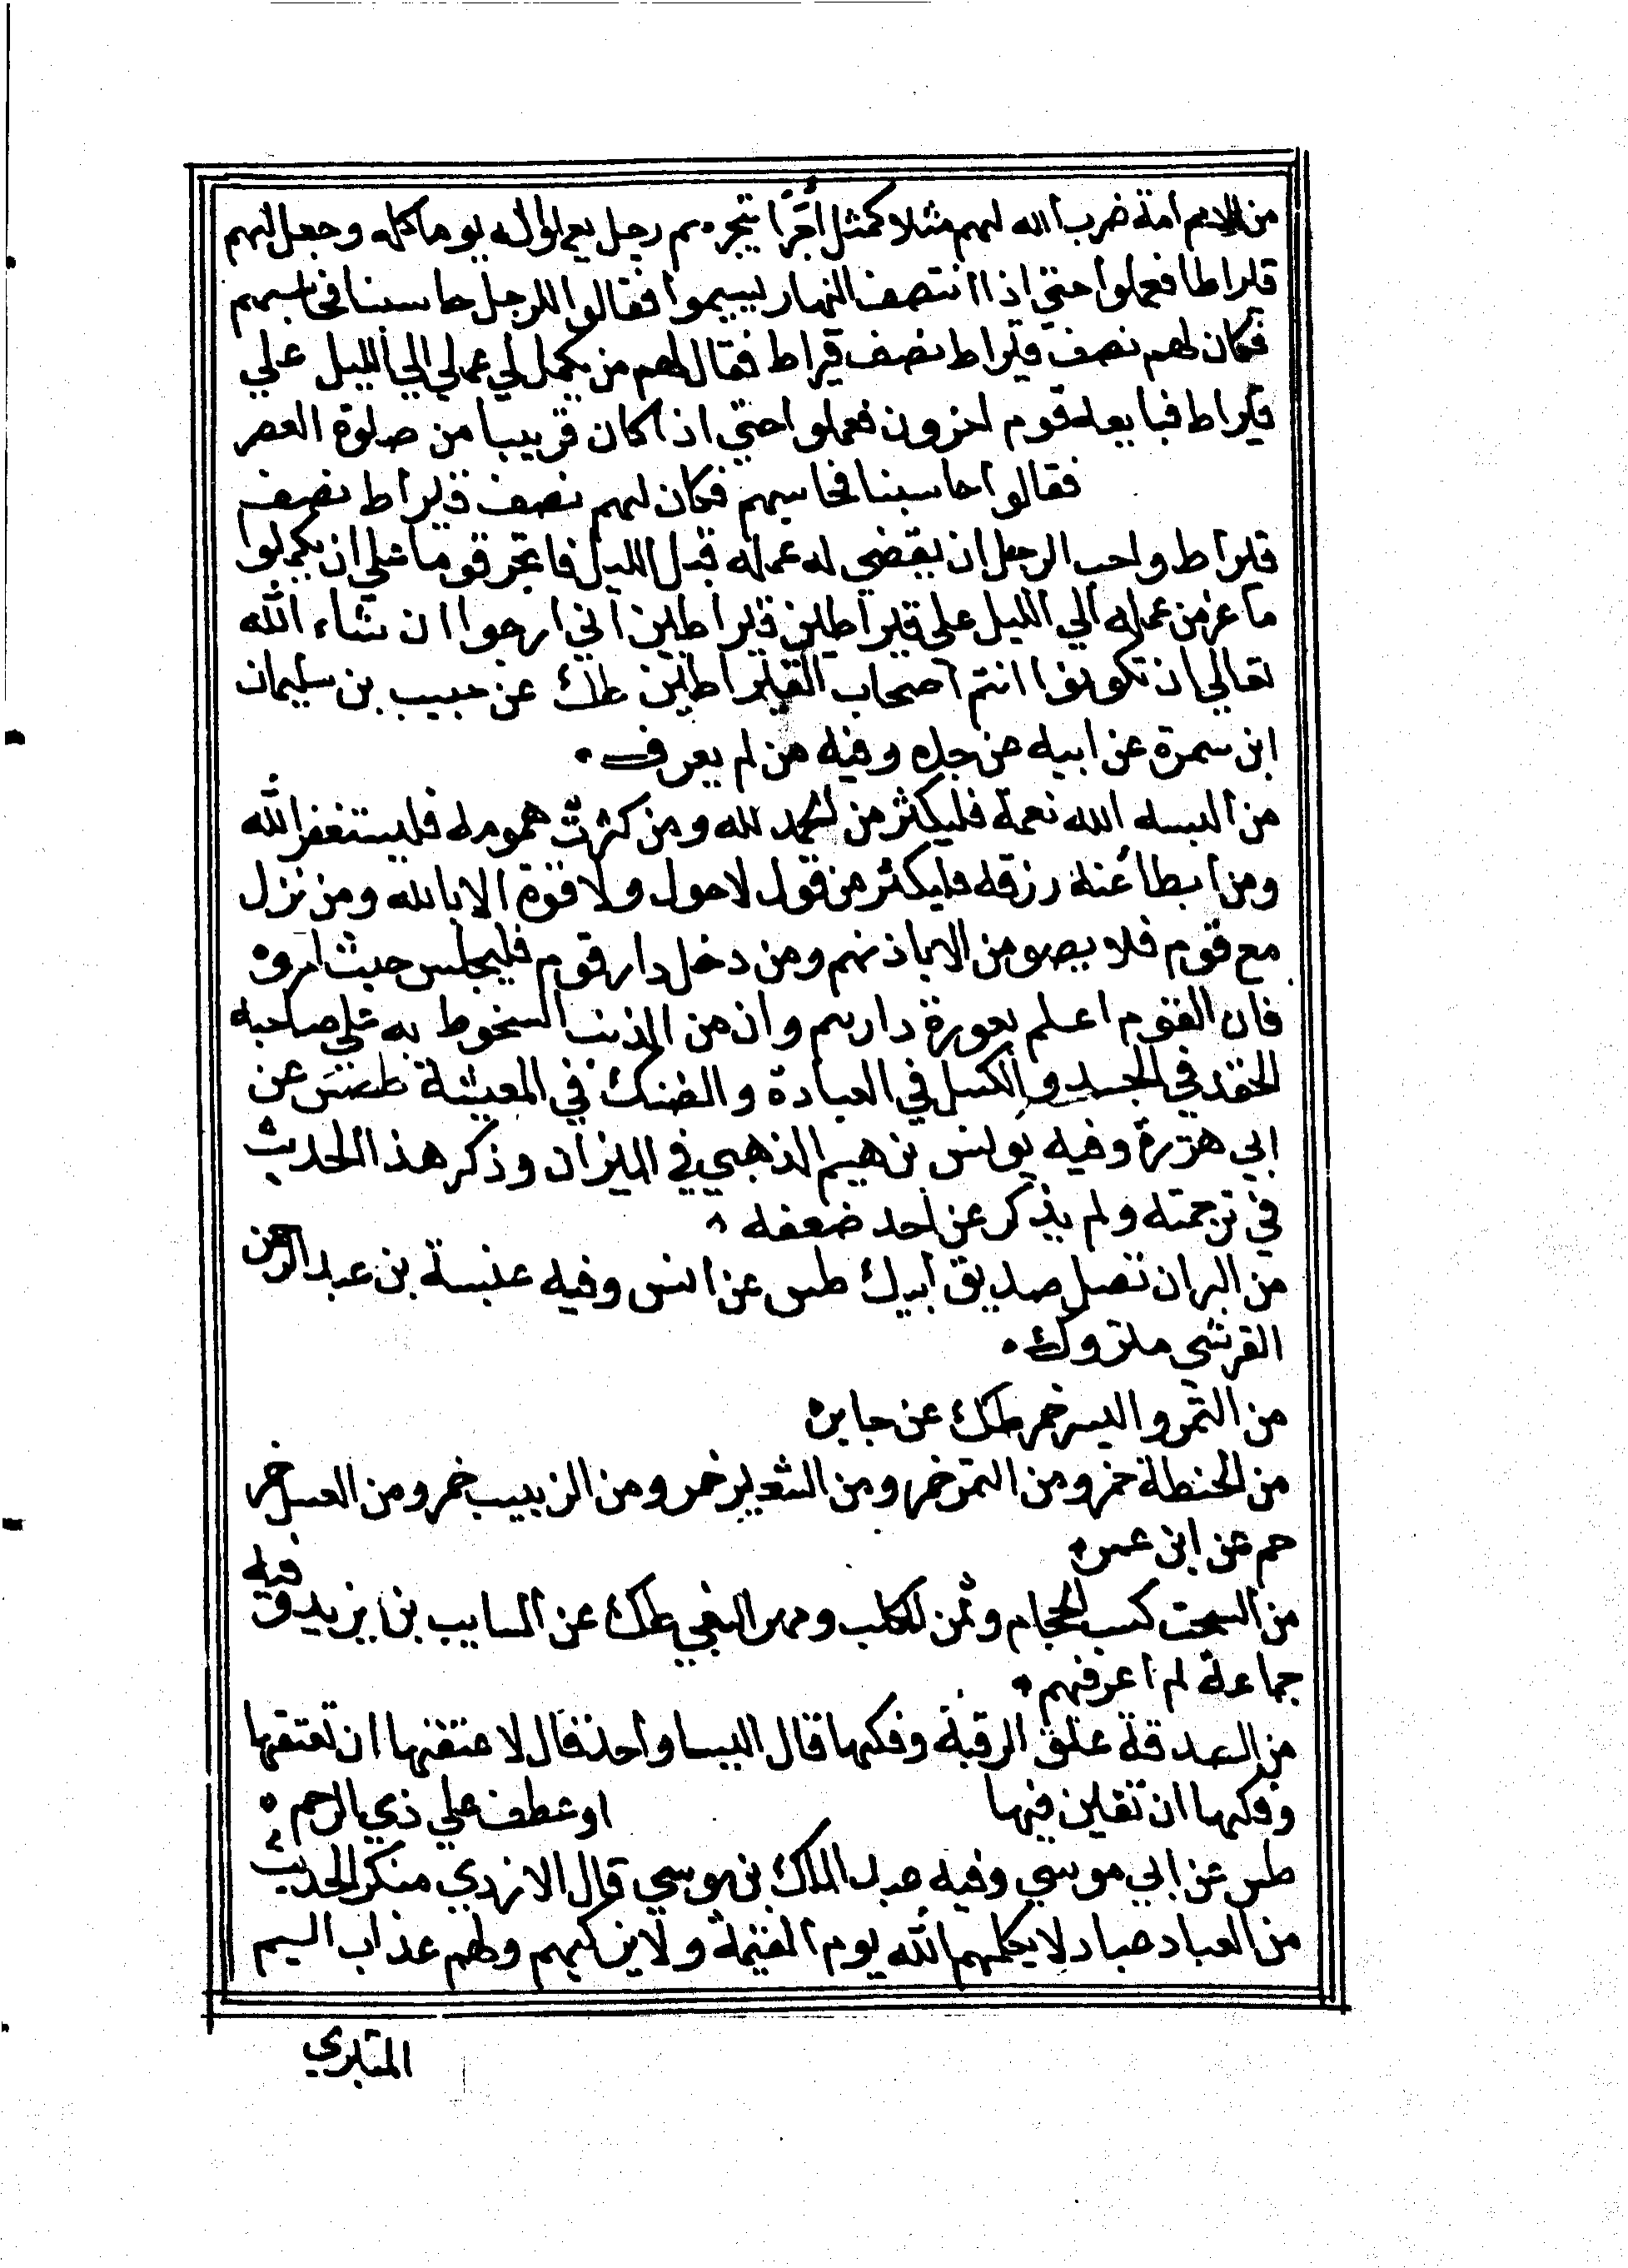 من الامم امة ضرب الله لهم مثلا كمثل أُجَرَا يتجرهم رجل يعملوا له يوما كله وجعل لهم
قيراطا فعملوا حتي اذا انتصف النهار ليسموا فقالوا للرجل حاسبنا فحاسبهم
فكان لهم نصف قيراط نصف قيراط فقال لهم من يكمل لي عملي الي الليل علي
قيراط فبايعه قوم اخرون فعملوا حتي اذا كان قريبا من صلوة العصر
فقالوا حاسبنا فحاسبهم فكان لهم نصف قيراط نصف
قيراط واحب الرجل ان يقضي له عمله قبل الليل فاتجر قوما علي ان يكملوا
ما غر من عمله الي الليل علي قيراطين قيراطين اني ارجوا ان شاء الله
تعالي ان تكونوا انتم اصحاب القيراطين طك عن حبيب بن سليمان
ابن سمرة عن ابيه عن جده وفيه من لم يعرف
من البسه الله نعمة فليكثر من الحمد لله ومن كثرت همومه فليستغفر الله
ومن ابطا عنه رزقه فليكثر من قول لا حول ولا قوة الا بالله ومن نزل
مع قوم فلا يصومن الا باذنهم ومن دخل دار قوم فليجلس حيث امروه
فان القوم اعلم بعورة دارهم وان من الذنب السخوط به علي صاحبه
الحقد في الجسد والكسل في العبادة والضنك في المعيشة طصس عن
ابي هريرة وفيه يونس بن هيم الذهبي في الميزان وذكر هذا الحديث
في ترجمته ولم يذكر عن احد ضعفه
من البر ان تصل صديق ابيك طس عن انس وفيه عنبسة بن عبد الرحمن
القرشي متروك
من التمر والبسر خمر طك عن جابر
من الحنطة خمر ومن التمر خمر ومن الشعير خمر ومن الزبيب خمر ومن العسل خمر
حم عن ابن عمر
من السحت كسب الحجام وثمن الكلب ومهر البغي طك عن السايب بن يزيد وفيه
جماعة لم اعرفهم
من الصدقة عتق الرقبة وفكها قال اليسا واحد قال لا عتقها ان تعتقها
وفكها ان تعين فيها او عطف علي ذي الرحم
طس عن ابي موسي وفيه عبد الملك بن موسي قال الازدي منكر الحديث
من العباد عباد لا يكلمهم الله يوم القيمة ولا يزكيهم ولهم عذاب اليم
المتبري